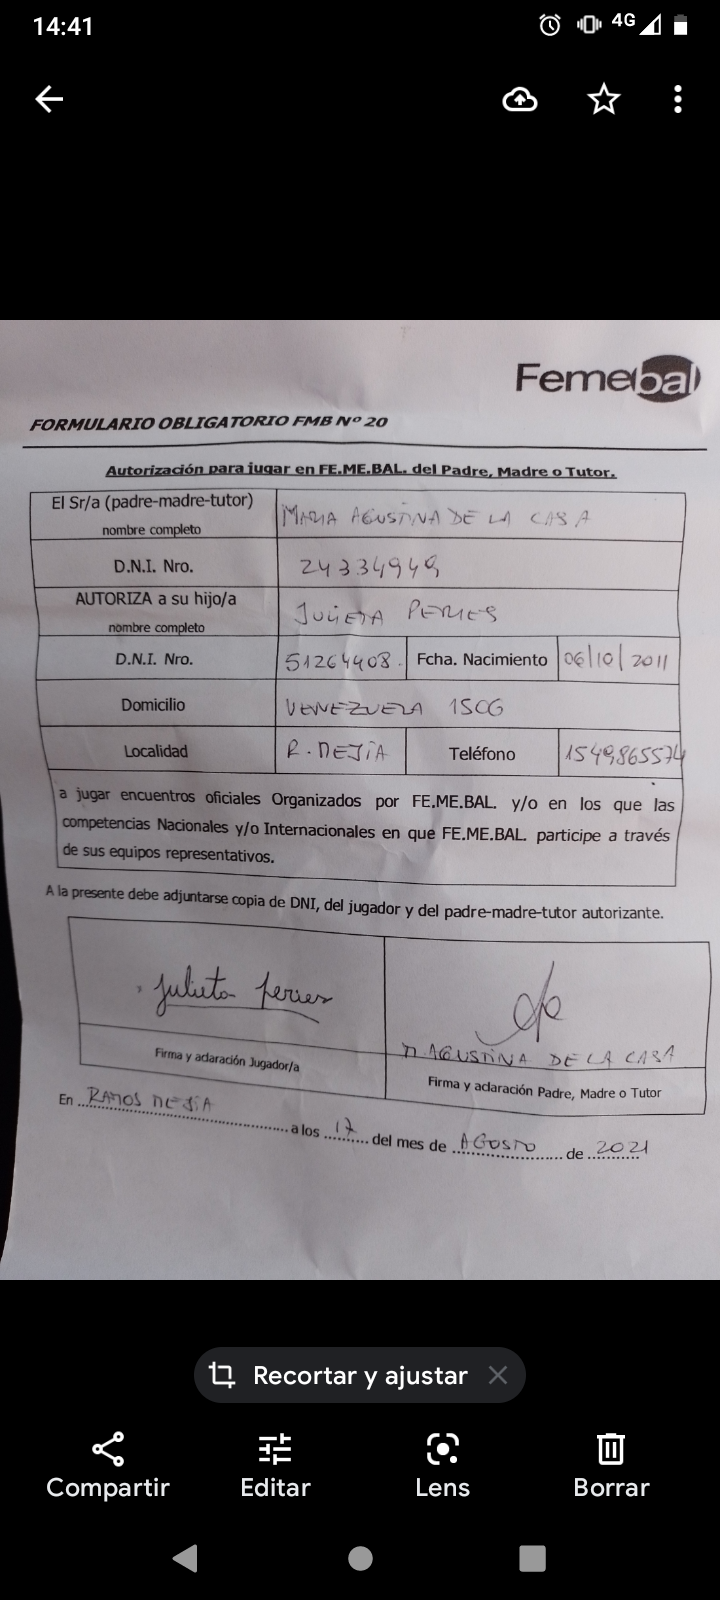 14:41
4G
Femebal
FORMULARIO OBLIGATORIO FMB Nº 20
Autorización para jugar en FE.ME.BAL. del Padre, Madre o Tutor.
El Sr/a (padre-madre-tutor) nombre completo MARIA AGUSTINA DE LA CASA
D.N.I. Nro. 24334949
AUTORIZA a su hijo/a nombre completo JULIETA PERIES
D.N.I. Nro. 51264408. Fcha. Nacimiento 06/10/2011
Domicilio VENEZUELA
Localidad R. MEJIA Teléfono 1549865574
a jugar encuentros oficiales Organizados por FE.ME.BAL. y/o en los que las
competencias Nacionales y/o Internacionales en que FE.ME.BAL. participe a través
de sus equipos representativos.
A la presente debe adjuntarse copia de DNI, del jugador y del padre-madre-tutor autorizante.
julieta peries
M. AGUSTINA DE LA CASA
Firma y aclaración Jugador/a
Firma y aclaración Padre, Madre o Tutor
En RAMOS MEJIA a los 17 del mes de AGOSTO de 2021
Recortar y ajustar
Compartir Editar Lens Borrar